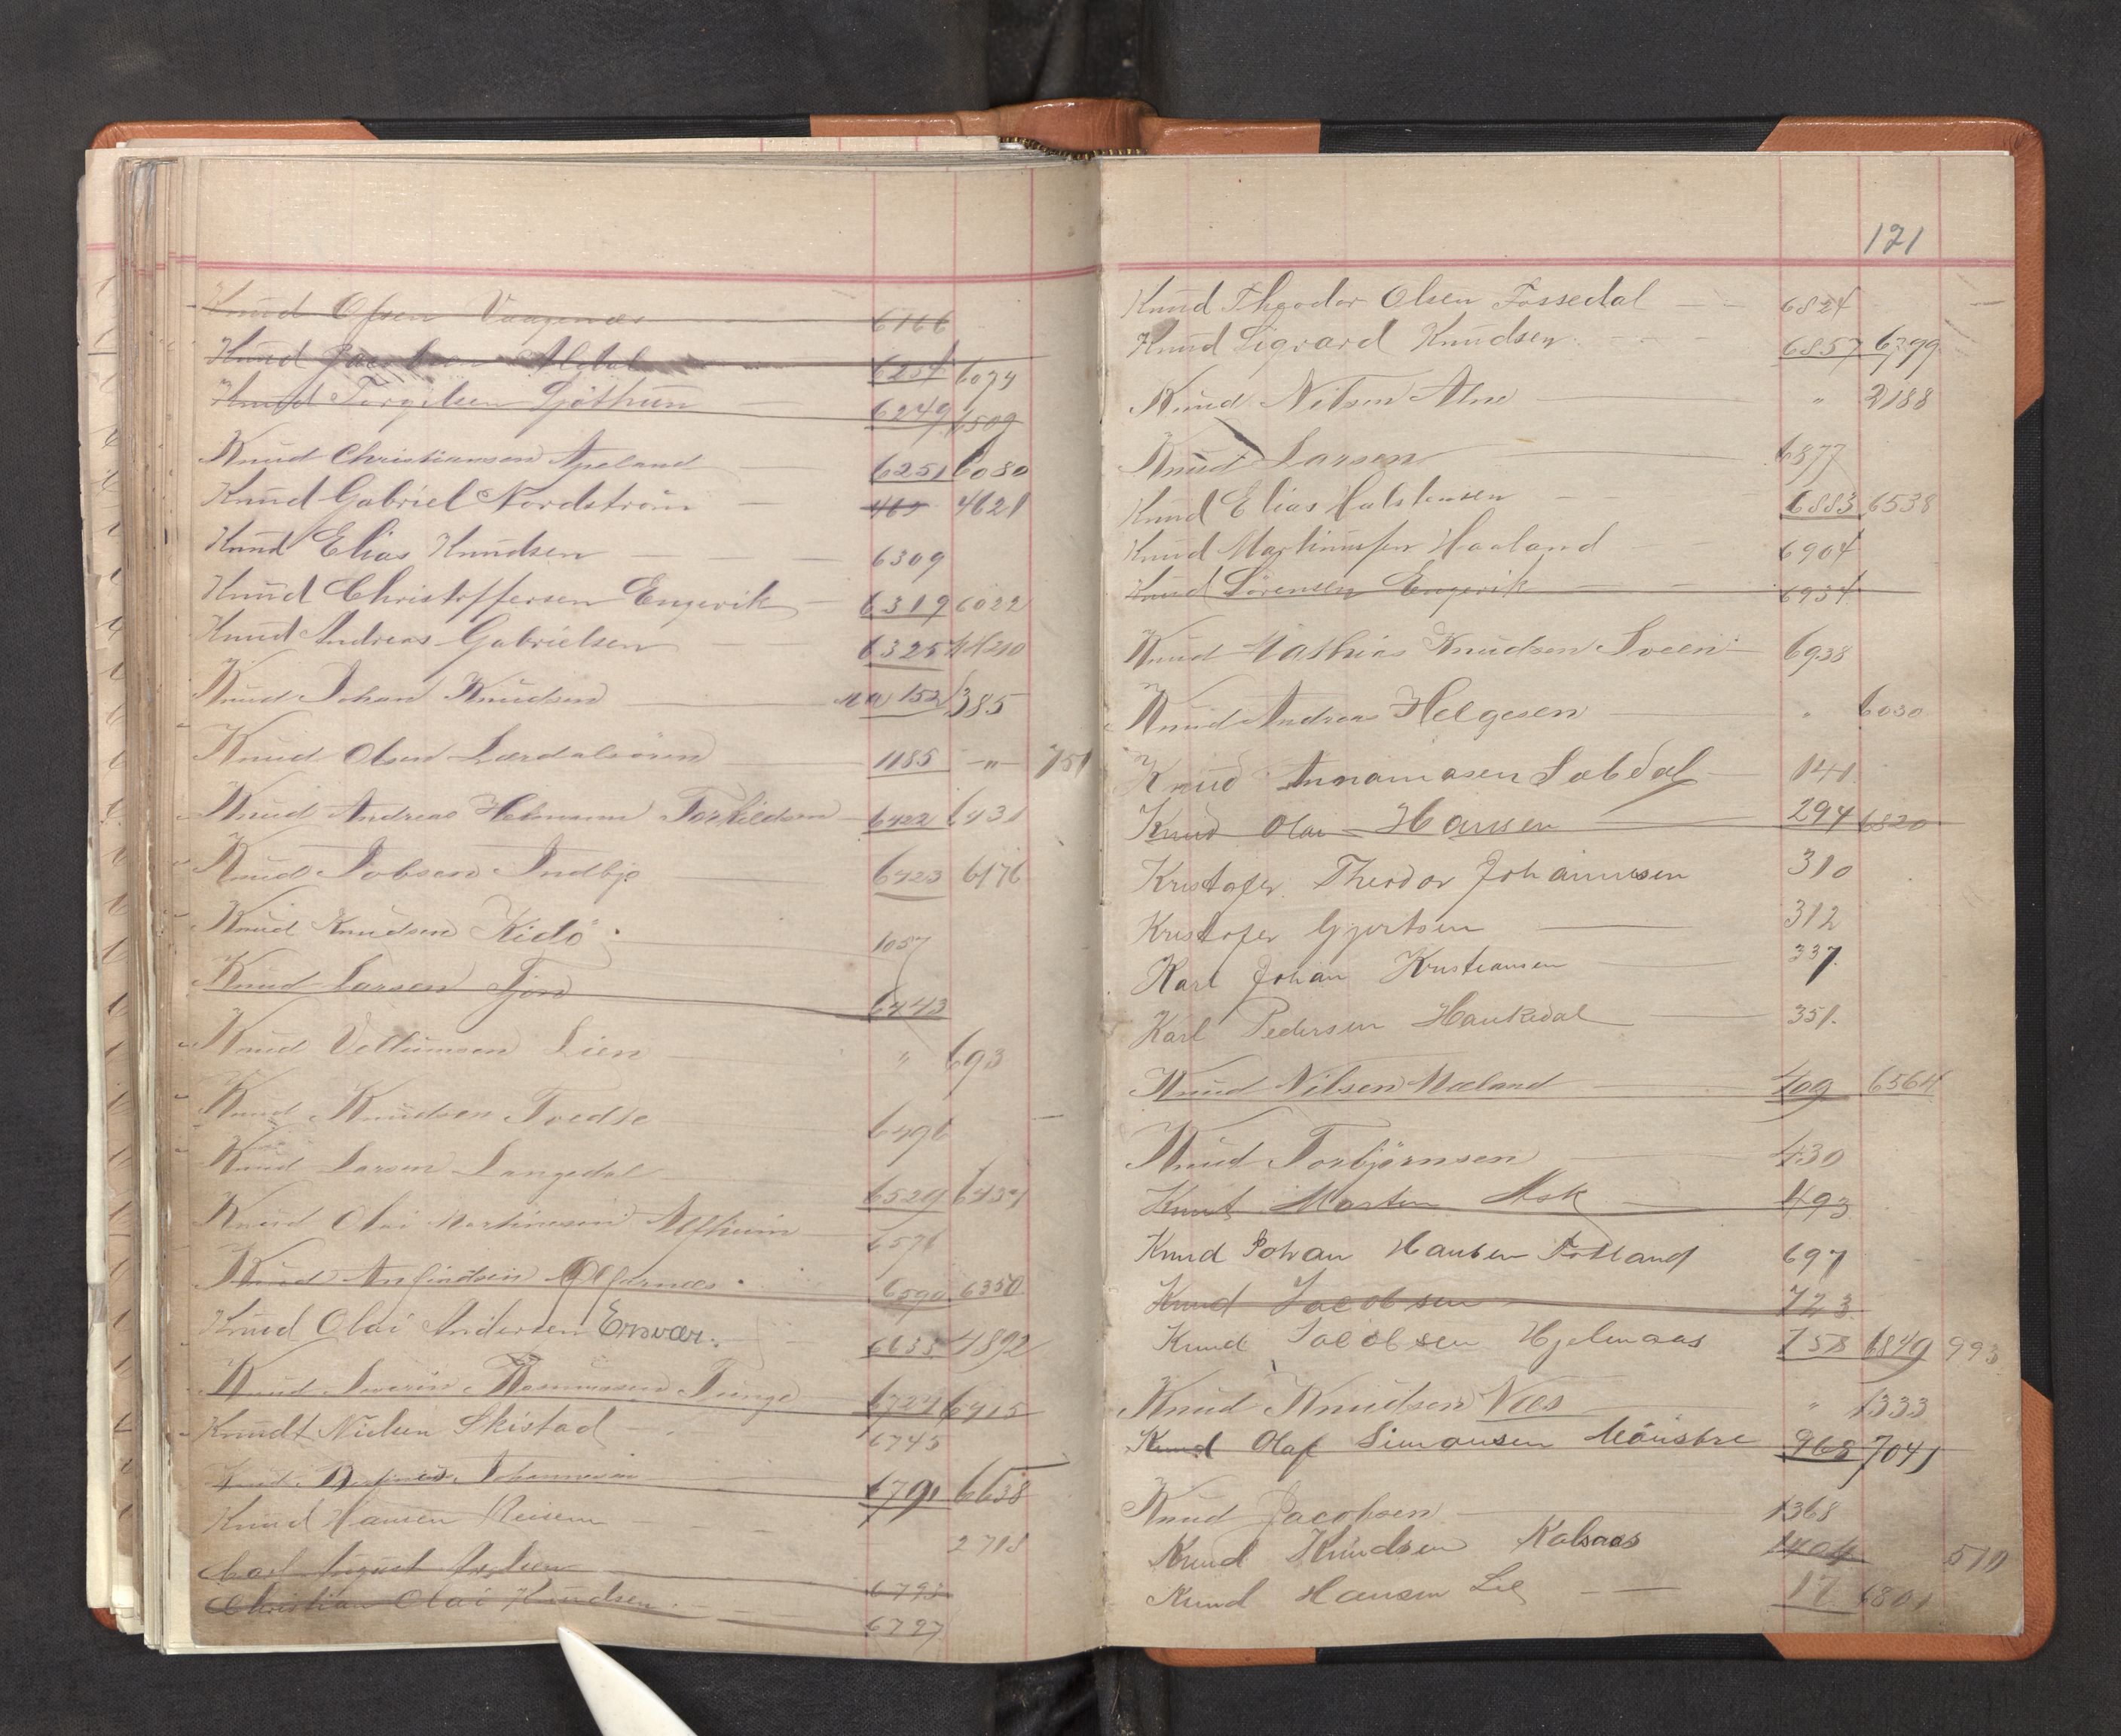 Knud Olsen Vaagenæs 6166
Knud Jacobsen 6234 6074
Knud Torgilsen Sjöthun 6249 6509
Knud Christiansen Apeland 6251 6080
Knud Gabriel Nordström 469 4621
Knud Elias Knudsen 6309
Knud Christoffersen Engevik 6319 6022
Knud Andreas Gabrielsen 6325
Knud Johan Knudsen 152 385
Knud Olsen Lærdalsören 1185 -"- 751
Knud Andreas Torkildsen 6422 6431
Knud Jobsen Indbjo 6423 6176
Knud Knudsen Kidö 1057
Knud Larsen Tjön 6443
Knud Vellumsen Lien " 693
Knud Knudsen Tvedte 6496
Knud Larsen Langedal 6529
Knud Olai Martinusen 6576
Knud Anfindsen 6590 6350
Knud Olai Andersen Ersvær 6635 4892
Knud Severin Rasmussen Tunge 6724 6415
Knudt Nielsen Skistad 6745
Knud Johannesen 6791 6638
Knud Hansen 2718
Carl August 6793
Christian Olai Knudsen 6797
121
Knud Theodor Olsen Fossedal 6824
Knud Sigvard Knudsen 6857 6799
Knud Nilsen Alne " 2188
Knud Larsen 6877
Knud Elias Halstensen 6883 6538
Knud Martinussen Haaland 6904
Knud Sörensen Engevik 6934
Knud Mathias Knudsen Sveen 6938
Knud Andreas Helgesen " 6030
Knud 141
Knud Olai Hansen 294 6820
Kristofer Theodor Johannesen 310
Kristofer Gjertsen 312
Karl Johan Kristiansen 337.
Karl Pedersen Haukedal 351.
Knud Nilsen Mæland 409 6564
Knud Torbjörnsen 430
Knut Morten Ask 493
Knud Johan Hansen Totland 697
Knud Jacobsen 723
Knud Jacobsen Hjelmaas 758 6849 993
Knud Knudsen Næs " 1333
Knud Olaf Simonsen 968 7041
Knud Jacobsen 1368
Knud Knudsen Kalsaas 1404 511
Knud Hansen Lie 17 6801